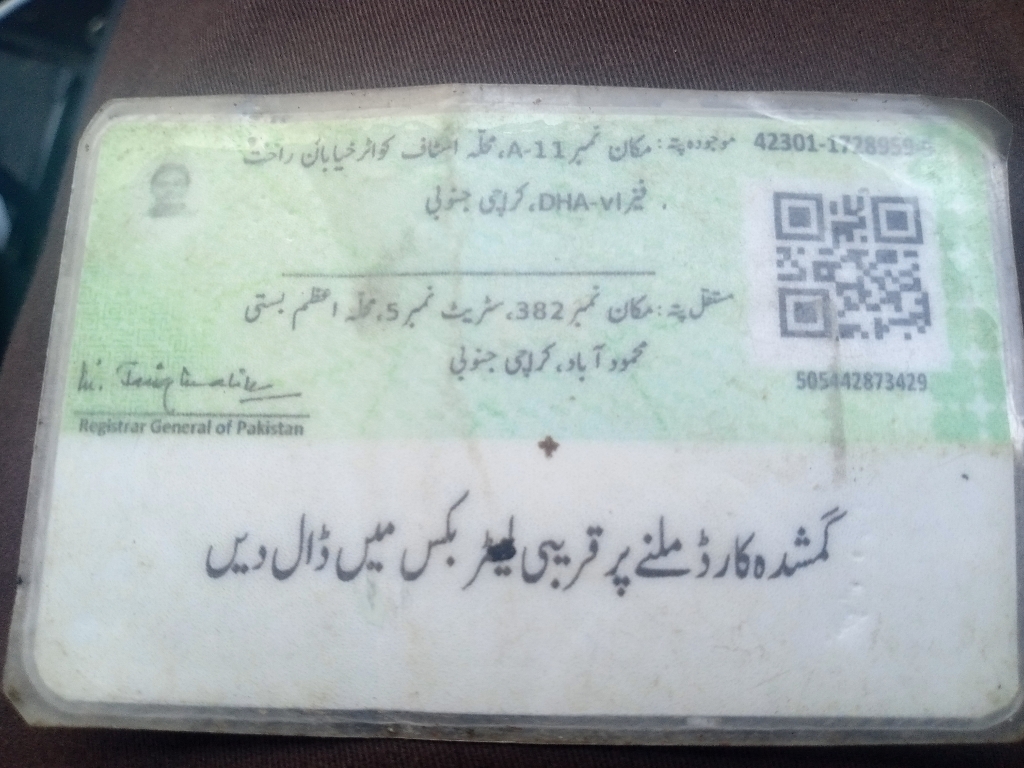 موجودہ پتہ: مکان نمبر A-11، محلّہ اسٹاف کواٹر خیابان راحت
42301-1728959-
فیز DHA-vI، کراچی جنوبی
مستقل پتہ: مکان نمبر 382، سٹریٹ نمبر 5، محلّہ اعظم بستی
محمود آباد، کراچی جنوبی
505442873429
Registrar General of Pakistan
گمشدہ کارڈ ملنے پر قریبی لیٹر بکس میں ڈال دیں